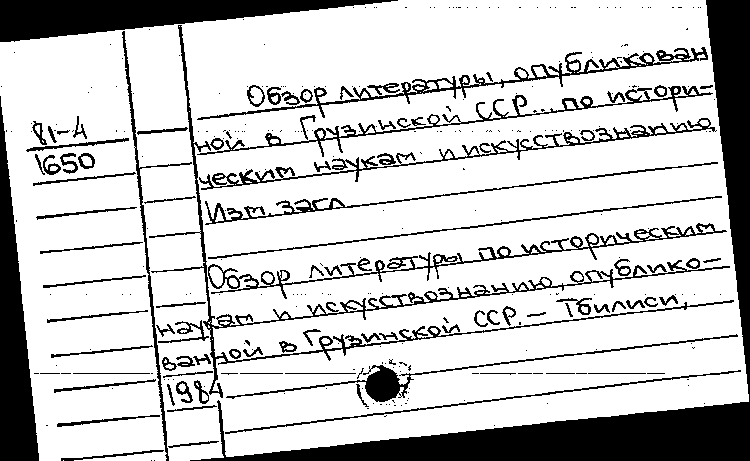 Обзор литературы, опубликован
81-4
1650
ной в Грузинской ССР... по истори-
ческим наукам и искусствознанию.
Изм. загл
Обзор литературы по историческим
наукам и искусствознанию, опублико-
ванной в Грузинской ССР. – Тбилиси,
1984